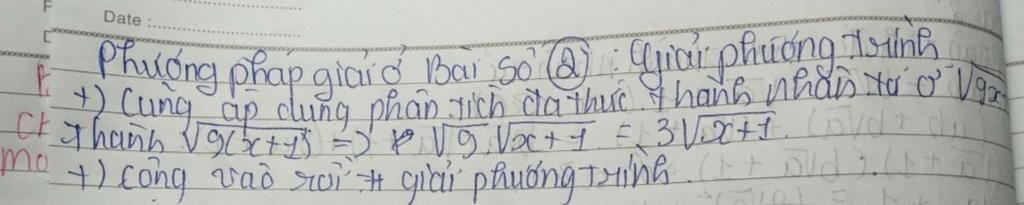 Date :
Phương pháp giải ở Bài số (2) : Giải phương trình
+) Cũng áp dụng phân tích đa thức thành nhân tử ở √9x
thành √9(x+1) => √9.√x+1 = 3√x+1.
+) Cộng vào rồi giải phương trình.